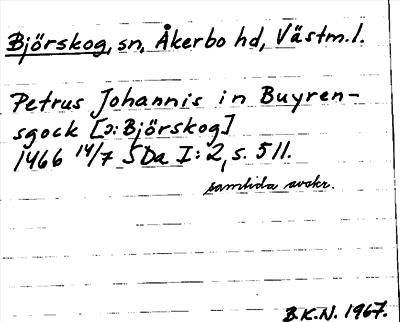 Björskog, sn, Åkerbo hd, Västm.l.
Petrus Johannis in Buyren-
sgock [ɔ: Björskog]
1466 14/7 SDa I:2, s. 511.
samtida avskr.
B.K.N. 1967.